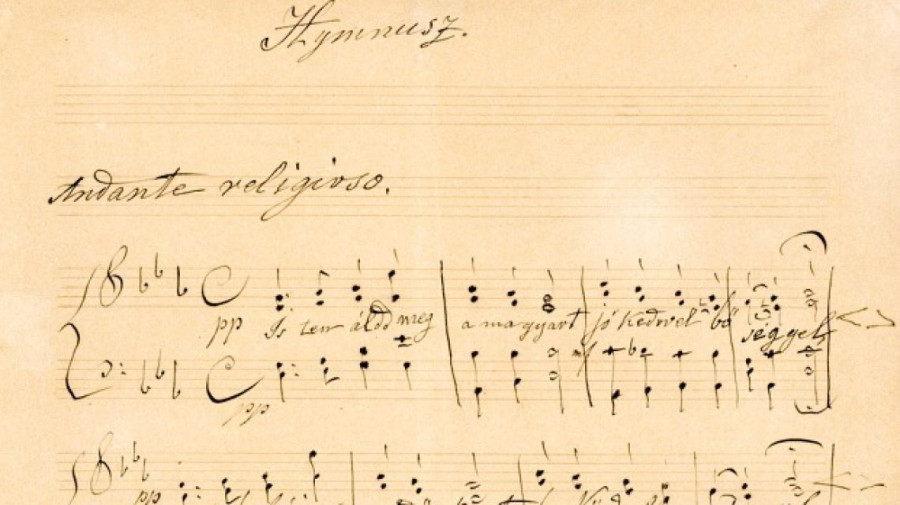 Hymnusz.
Andante religioso.
pp Is ten áldd meg a magyart jó kedvvel bő séggel
pp
pp